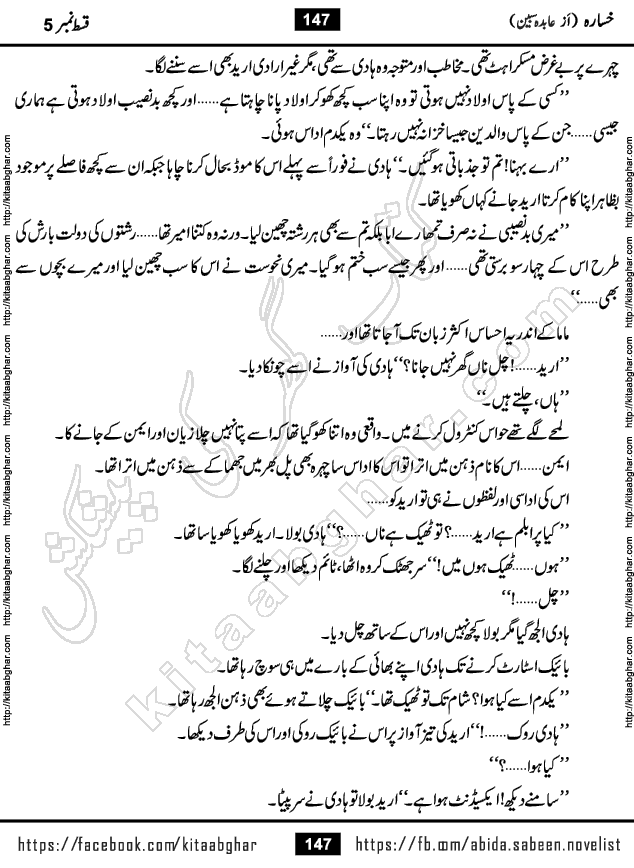 خسارہ (از عابدہ سبین)
147
قسط نمبر 5
چہرے پر بے غرض مسکراہٹ تھی۔ مخاطب اور متوجہ وہ ہادی سے تھی، مگر غیر ارادی ارید بھی اسے سننے لگا۔
’’کسی کے پاس اولاد نہیں ہوتی تو وہ اپنا سب کچھ کھو کر اولاد پانا چاہتا ہے……اور کچھ بدنصیب اولاد ہوتی ہے ہماری
جیسی……جن کے پاس والدین جیسا خزانہ نہیں رہتا۔‘‘ وہ یکدم اداس ہوئی۔
’’ارے بہنا! تم تو جذباتی ہو گئیں۔‘‘ ہادی نے فوراً سے پہلے اس کا موڈ بحال کرنا چاہا جبکہ ان سے کچھ فاصلے پر موجود
بظاہر اپنا کام کرتا ارید جانے کہاں کھویا تھا۔
’’میری بدنصیبی نے نہ صرف تمھارے ابا بلکہ تم سے بھی ہر رشتہ چھین لیا۔ ورنہ وہ کتنا امیر تھا……رشتوں کی دولت بارش کی
طرح اس کے چہار سو برستی تھی……اور پھر جیسے سب ختم ہو گیا۔ میری نحوست نے اس کا سب چھین لیا اور میرے بچوں سے
بھی……‘‘
ماما کے اندر یہ احساس اکثر زبان تک آ جاتا تھا اور……
’’ارید……! چل ناں گھر نہیں جانا؟‘‘ ہادی کی آواز نے اسے چونکا دیا۔
’’ہاں، چلتے ہیں۔‘‘
لمحے لگے تھے حواس کنٹرول کرنے میں۔ واقعی وہ اتنا کھو گیا تھا کہ اسے پتا نہیں چلا زیان اور ایمن کے جانے کا۔
ایمن……اس کا نام ذہن میں اترا تو اس کا اداس سا چہرہ بھی پل بھر میں جھماکے سے ذہن میں اترا تھا۔
اس کی اداسی اور لفظوں نے ہی تو ارید کو……
’’کیا پرابلم ہے ارید……؟ تو ٹھیک ہے ناں……؟‘‘ ہادی بولا۔ ارید کھویا کھویا سا تھا۔
’’ہوں……ٹھیک ہوں میں!‘‘ سر جھٹک کر وہ اٹھا، ٹائم دیکھا اور چلنے لگا۔
’’چل……!‘‘
ہادی الجھ گیا مگر بولا کچھ نہیں اور اس کے ساتھ چل دیا۔
بائیک اسٹارٹ کرنے تک ہادی اپنے بھائی کے بارے میں ہی سوچ رہا تھا۔
’’یکدم اسے کیا ہوا؟ شام تک تو ٹھیک تھا۔‘‘ بائیک چلاتے ہوئے بھی ذہن الجھ رہا تھا۔
’’ہادی روک……!‘‘ ارید کی تیز آواز پر اس نے بائیک روکی اور اس کی طرف دیکھا۔
’’کیا ہوا……؟‘‘
’’سامنے دیکھ! ایکسیڈنٹ ہوا ہے۔‘‘ ارید بولا تو ہادی نے سر پیٹا۔
http://kitaabghar.com http://kitaabghar.com http://kitaabghar.com http://kitaabghar.com http://kitaabghar.com http://kitaabghar.com
http://kitaabghar.com http://kitaabghar.com http://kitaabghar.com http://kitaabghar.com http://kitaabghar.com http://kitaabghar.com
کتاب گھر کی پیشکش
kitaabghar.com
https://facebook.com/kitaabghar
147
https://fb.com/abida.sabeen.novelist